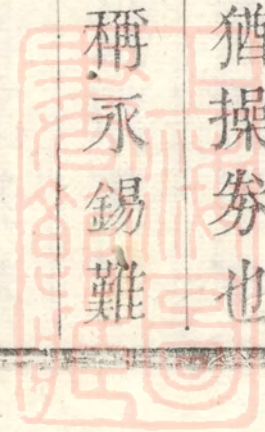 猶操券也
稱永錫難